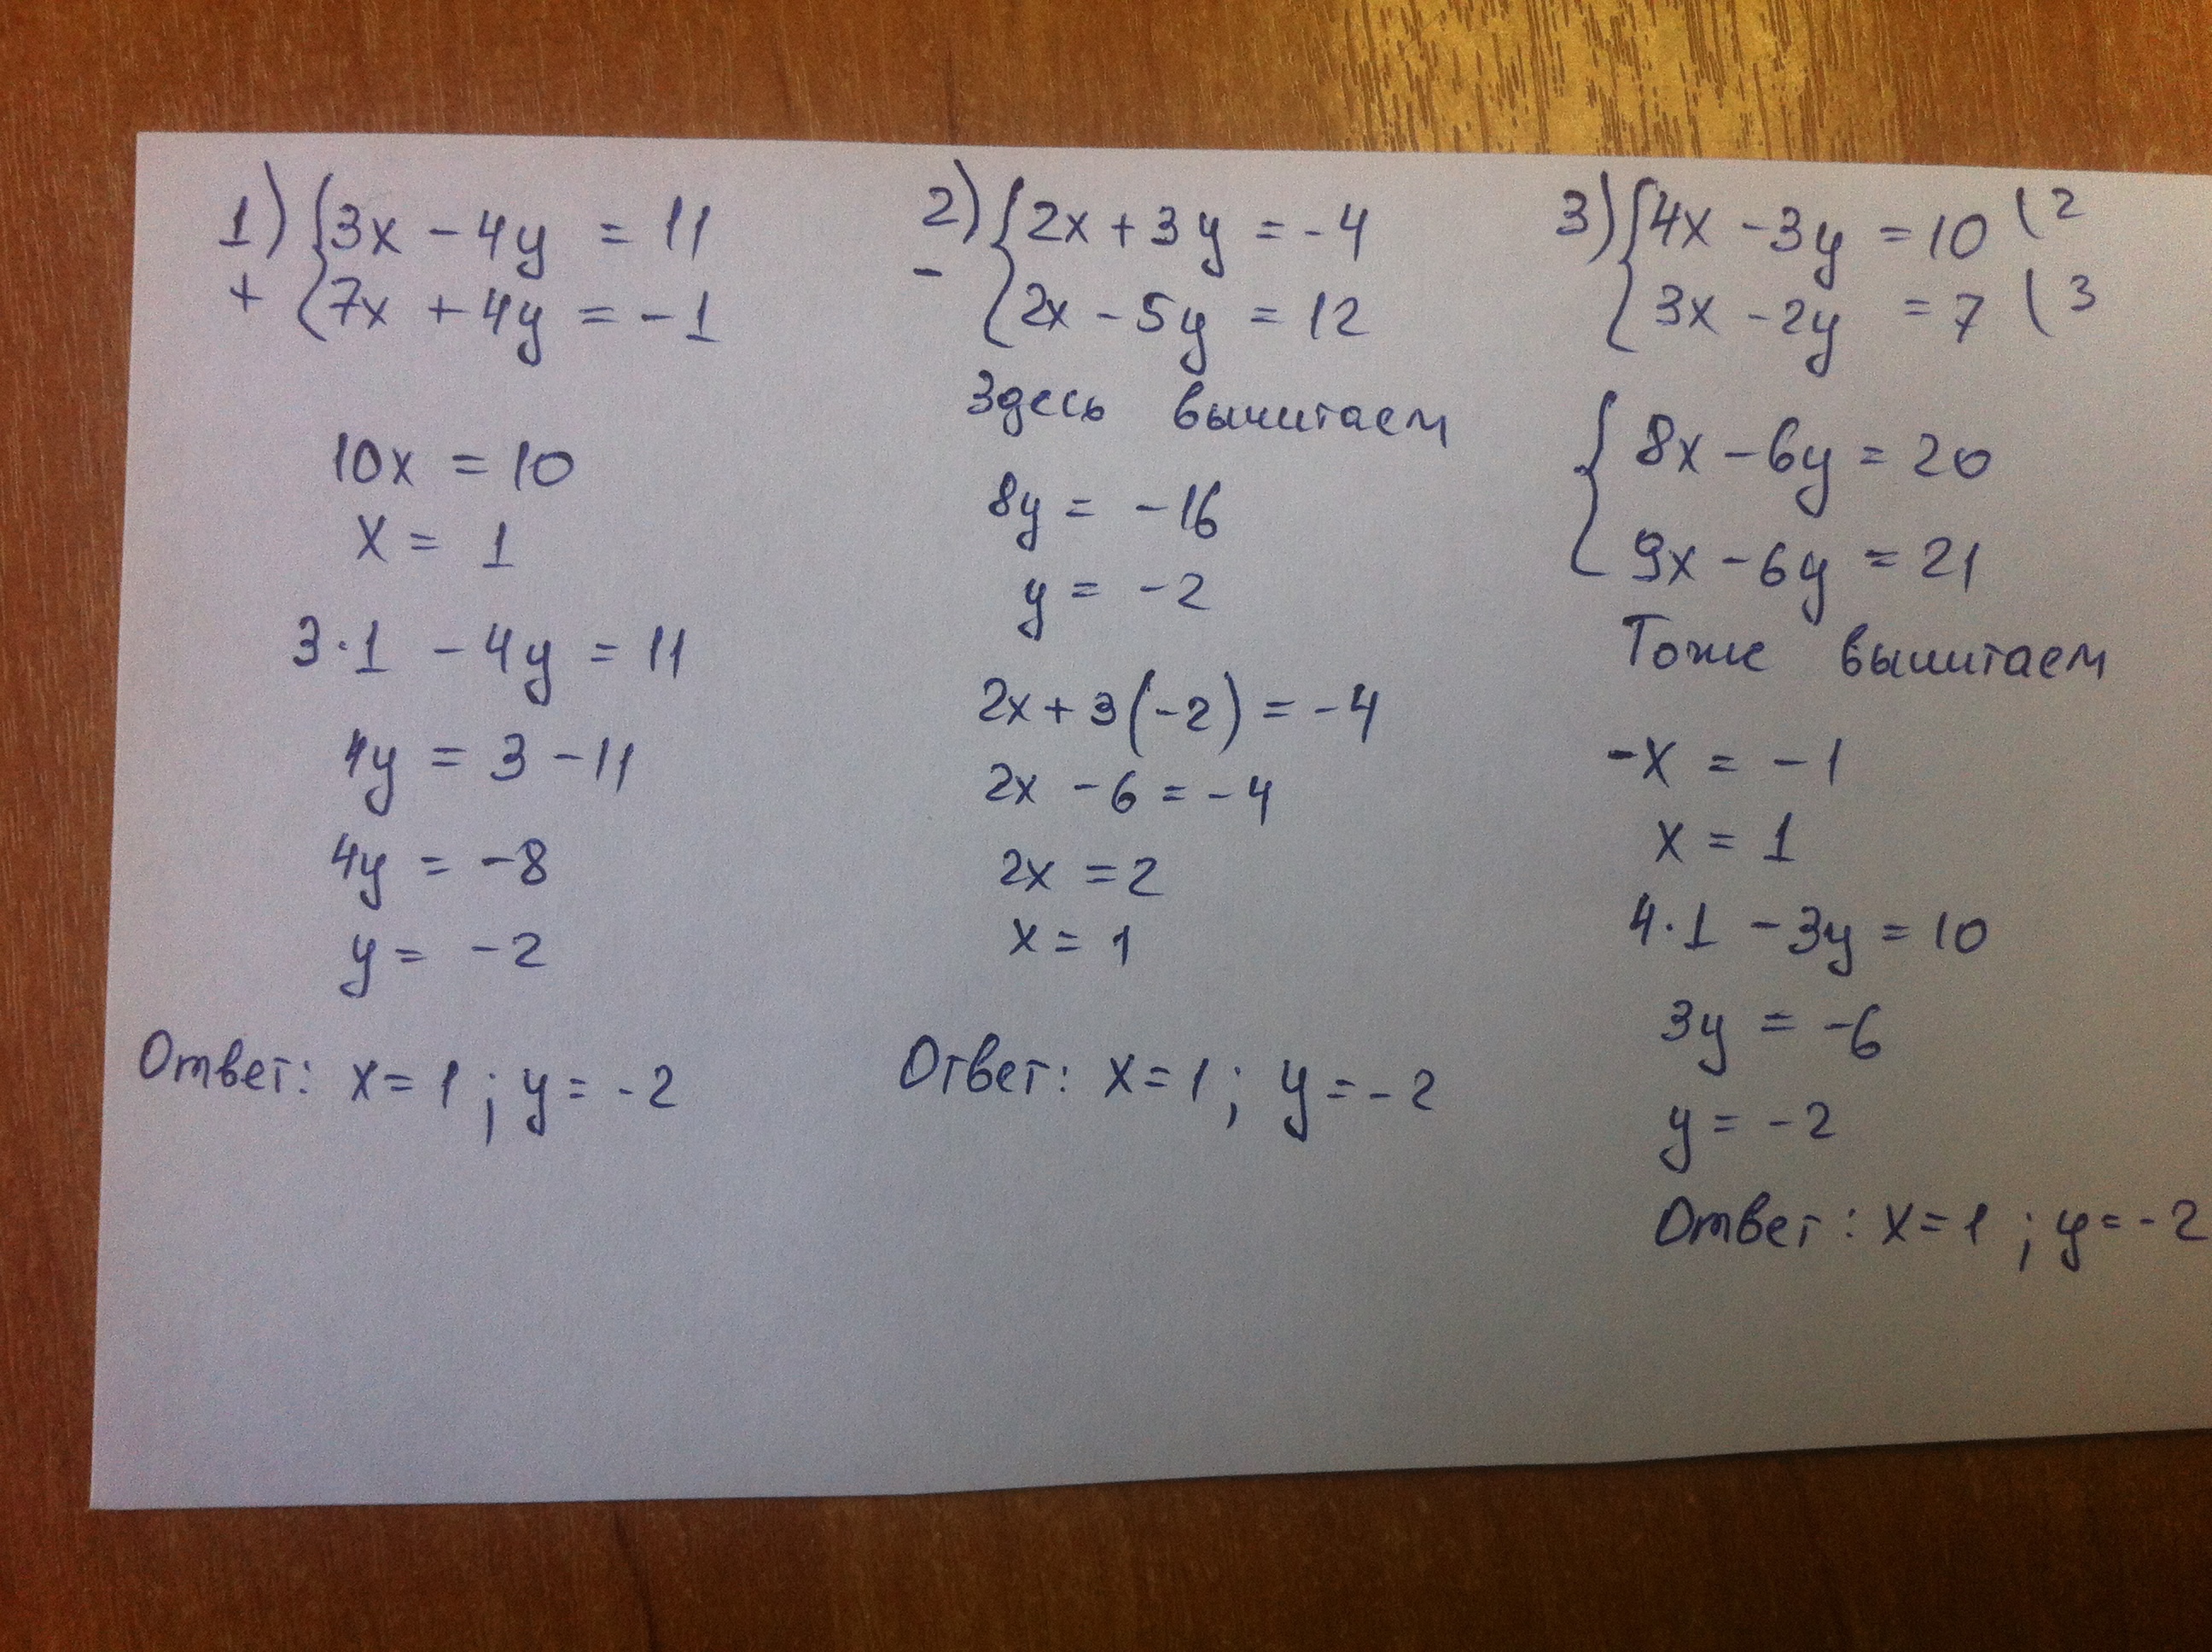 1) {3x - 4y = 11
+ {7x + 4y = -1
10x = 10
x = 1
3·1 - 4y = 11
4y = 3 - 11
4y = -8
y = -2
Ответ: x = 1 ; y = -2
2) {2x + 3y = -4
- {2x - 5y = 12
Здесь вычитаем
8y = -16
y = -2
2x + 3(-2) = -4
2x - 6 = -4
2x = 2
x = 1
Ответ: x = 1 ; y = -2
3) {4x - 3y = 10 | 2
{3x - 2y = 7 | 3
{8x - 6y = 20
{9x - 6y = 21
Тоже вычитаем
-x = -1
x = 1
4·1 - 3y = 10
3y = -6
y = -2
Ответ: x = 1 ; y = -2